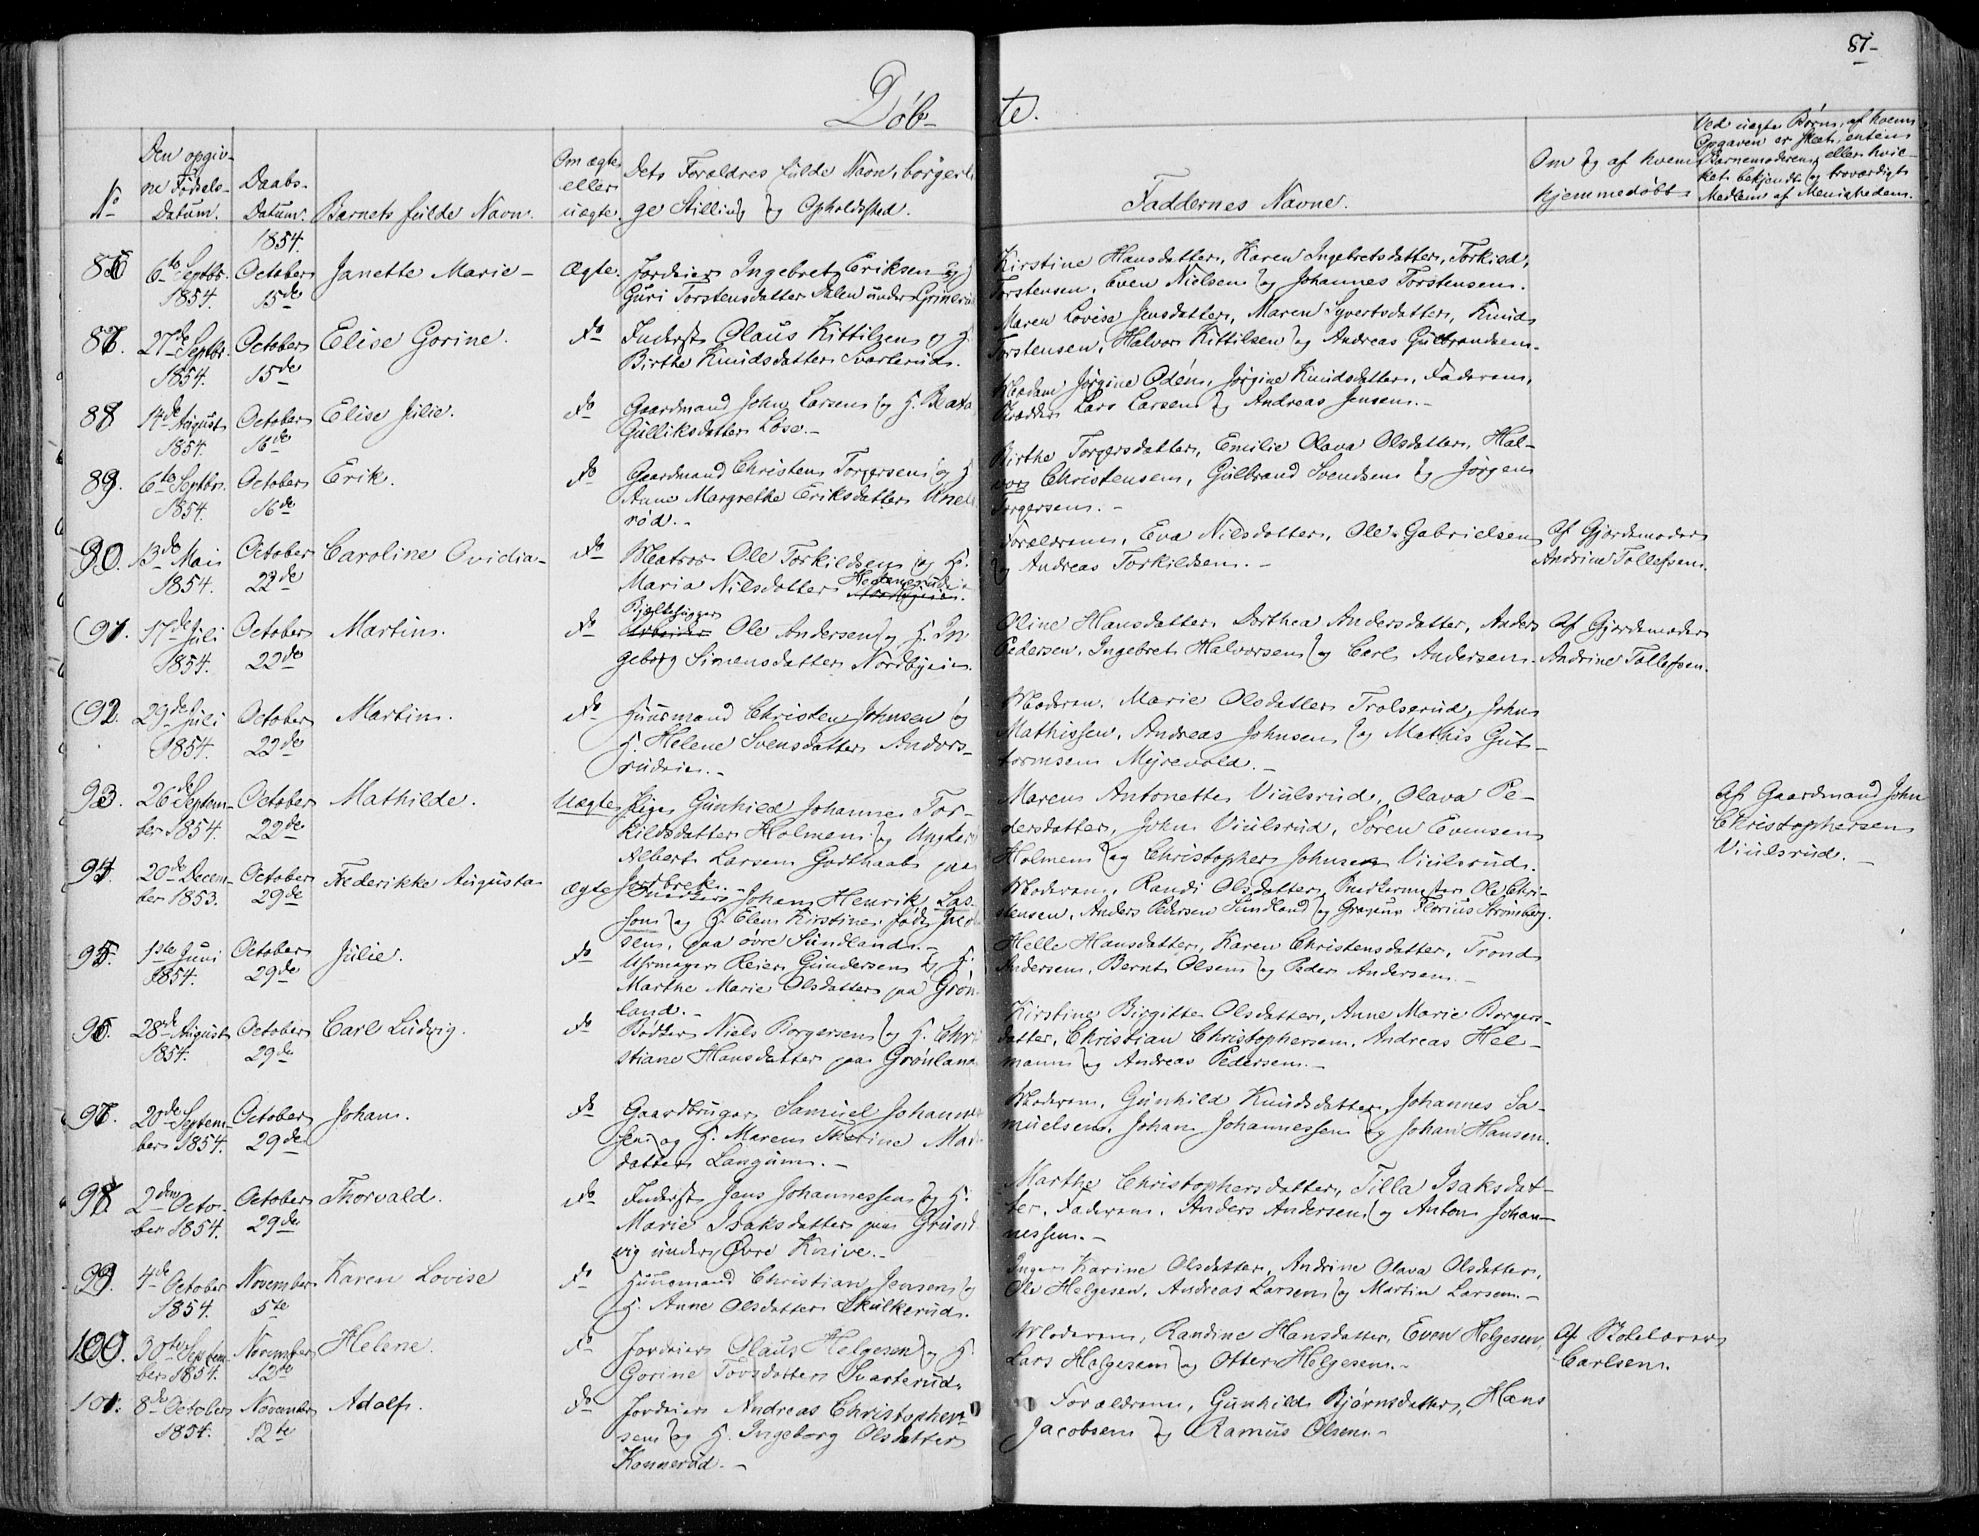 87-
Døb-
te.
No
Den opgiv-
ne Fødsels-
Datum.
Daabs-
Datum.
Barnets fulde Navn.
Om ægte
eller
uægte.
Dets Forældres fulde Navn, borgerli
ge Stilling og Opholdssted.
Faddernes Navne.
Om og af hvem
hjemmedøbt
Ved uægte Børn, af hvem
Opgaven er skeet, enten
Barnemoderen, eller hvil-
ket bekjendt og troværdigt
Medlem af Menigheden.
1854.
86 6te Septbr. October Janette Marie - Ægte. Jordeier Ingebret Eriksen og
1854. 15de Guri Torstensdatter Dalen under
Kirstine Hansdatter, Karen Ingebretsdatter, Torkild
Torstensen, Even Nielsen og Johannes Torstensen.
87. 27de Septbr. October Elise Gorine. do Inderst Olaus Kittilsen og H.
1854. 15de Birthe Knudsdatter Svarterud.
Maren Lovise Jensdatter, Maren Syvertsdatter, Knud
Torstensen, Halvor Kittilsen og Andreas Gulbrandsen.
88 14de August October Elise Julie. do Gaardmand John Larsen og H. Beata
1854. 16de Gulliksdatter Løse.-
Madam Jørgine Odén, Jørgine Knudsdatter, Faderen,
Lars Larsen og Andreas Jensen.-
89. 6te Septbr. October Erik. do Gaardmand Christen Torgersen og H.
1854. 16de Anne Margrethe Eriksdatter
rød.-
Birthe Torgersdatter, Emilie Olava Olsdatter, Hal-
vor Christensen, Gulbrand Svendsen og Jørgen
Torgersen.-
90. 13de Mai October Caroline Ovidia- do Matros Ole Torkildsen og H.
1854. 22de Maria Nilsdatter
Forældrene, Eva Nilsdatter, Ole Gabrielsen
og Andreas Torkildsen.-
Af Gjordemoder
Andrine Tollefsen.
91. 17de Juli October Martin. do Ole Andersen og H. In
1854. 22de geborg Simensdatter Nordbyeie.
Oline Hansdatter, Dorthea Andersdatter, Anders
Pedersen, Ingebret Halvorsen og Carl Andersen.
Af Gjordemoder
Andrine Tollefsen.
92. 29de Juli October Martin. do Huusmand Christen Johnsen og
1854. 22de H. Helene Svensdatter Andors-
rudeie.-
Moderen, Marie Olsdatter Trolserud, John
Mathissen, Andreas Johnsen og Mathis Gut-
tormsen Myrevold.-
93. 26de Septem- October Mathilde. Uægte Pige Gunhild Johanne Tor-
ber 1854. 22de kildsdatter Holmen og Ungkarl
Albert Larsen Godthaab paa
Maren Antonette Viulsrud, Olava Pe-
dersdatter, John Viulsrud, Søren Evensen
Holmen og Christopher Johnsen Viulsrud.
Af Gaardmand John
Christophersen
Viulsrud.-
94. 20de Decem- October Frederikke Augusta Ægte Johan Henrik Las-
ber 1853. 29de sen og H. Elen Kirstine, født
sen, paa øvre Sundland.-
Moderen, Randi Olsdatter, Ole Chri-
stensen, Anders Pedersen Sundland og Florius Strömberg.
95. 1ste Juni October Julie. do Uhrmager Reier Gundersen og H.
1854. 29de Marthe Marie Olsdatter paa Grøn
land.-
Helle Hansdatter, Karen Christensdatter, Trond
Andersen, Bernt Olsen og Peder Andersen.-
96. 28de August October Carl Ludvig. do Bødker Niels Borgersen og H. Chri
1854. 29de stiane Hansdatter paa Grønland
Kirstine Birgitte Olsdatter, Anne Marie Borgers-
datter, Christian Christophersen, Andreas Hel-
mann og Andreas Pedersen.-
97. 20de Septem- October Johan. do Gaardbruger Samuel Johannes
ber 1854. 29de sen og H. Maren Thorine
datter Langum.-
Moderen, Gunhild Knudsdatter, Johannes Sa-
muelsen, Johan Johannessen og Johan Hansen.
98. 2den Octo- October Thorvald. do Inderst Jens Johannessen og H.
ber 1854. 29de Marie Isaksdatter paa Grund
vig under Øvre Knive.-
Marthe Christophersdatter, Tilla Isaksdat-
ter, Faderen, Anders Andersen og Anton Johan-
nessen.-
99. 4de October November Karen Lovise do Huusmand Christian Jensen og
1854. 5te H. Anne Olsdatter Skulkerud.
Inger Karine Olsdatter, Andrine Olava Olsdatter,
Ole Helgesen, Andreas Larsen og Martin Larsen.-
100. 30te Septem- November Helene. do Jordeier Olaus Helgesen og H.
ber 1854. 12te Gorine Tovsdatter Svarterud.
Moderen, Randine Hansdatter, Even Helgesen,
Lars Helgesen og Otter Helgesen.-
Af Skolelærer
Carlsen.
101. 8de October November Adolf. do Jordeier Andreas Christopher-
1854. 12te sen og H. Ingeborg Olsdatter
Konnerud.-
Forældrene, Gunhild Bjørnsdatter, Hans
Jacobsen og Ramus Olsen.-